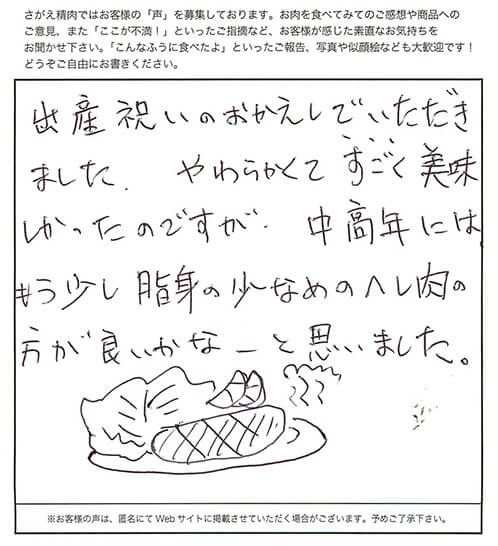 さがえ精肉ではお客様の「声」を募集しております。お肉を食べてみてのご感想や商品への
ご意見、また「ここが不満！」といったご指摘など、お客様が感じた素直なお気持ちを
お聞かせ下さい。「こんなふうに食べたよ」といったご報告、写真や似顔絵なども大歓迎です！
どうぞご自由にお書きください。
出産祝いのおかえしでいただき
ました。 やわらかくて すごく美味
しかったのですが、中高年には
もう少し脂身の少なめのヘレ肉の
方が良いかなーと思いました。
※お客様の声は、匿名にてWebサイトに掲載させていただく場合がございます。予めご了承下さい。